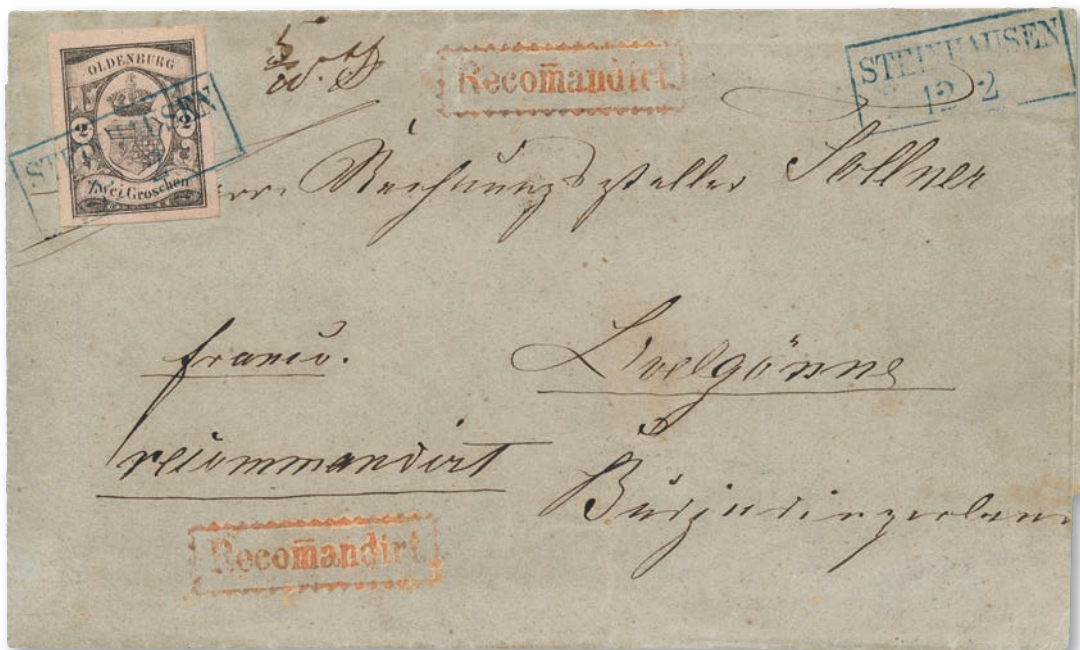 OLDENBURG
2 2
Zwei Groschen
Recom̄andirt.
STEINHAUSEN
12 2
Rechnungssteller Sollner
franco.
recommandirt
Ovelgönne
Butjadingerland
Recom̄andirt